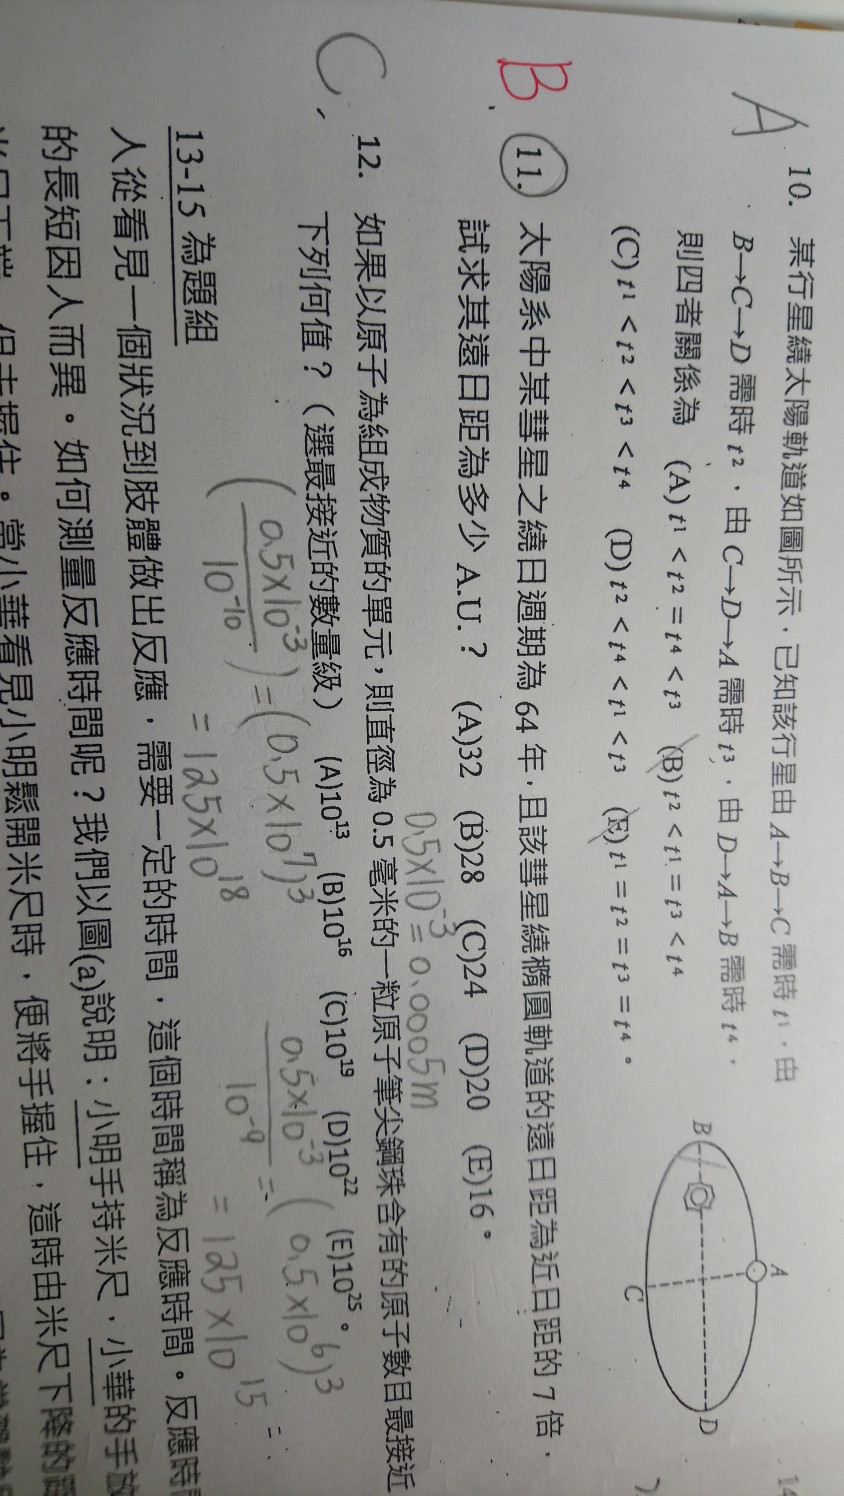 A
10. 某行星繞太陽軌道如圖所示，已知該行星由 A→B→C 需時 t1，由
B→C→D 需時 t2，由 C→D→A 需時 t3，由 D→A→B 需時 t4，
則四者關係為 (A) t1 < t2 = t4 < t3 (B) t2 < t1 = t3 < t4
(C) t1 < t2 < t3 < t4 (D) t2 < t4 < t1 < t3 (E) t1 = t2 = t3 = t4。
A
B
C
D
14
B
11. 太陽系中某彗星之繞日週期為 64 年，且該彗星繞橢圓軌道的遠日距為近日距的 7 倍，
試求其遠日距為多少 A.U.？ (A)32 (B)28 (C)24 (D)20 (E)16。
0.5×10⁻³ = 0.0005m
C
12. 如果以原子為組成物質的單元，則直徑為 0.5 毫米的一粒原子筆尖鋼珠含有的原子數目最接近
下列何值？（選最接近的數量級） (A)10¹³ (B)10¹⁶ (C)10¹⁹ (D)10²² (E)10²⁵。
(0.5×10⁻³ / 10⁻¹⁰) = (0.5×10⁷)³
= 125×10¹⁸
0.5×10⁻³ / 10⁻⁹ = (0.5×10⁶)³
= 125×10¹⁵
13-15 為題組
人從看見一個狀況到肢體做出反應，需要一定的時間，這個時間稱為反應時間。反應時
的長短因人而異。如何測量反應時間呢？我們以圖(a)說明：小明手持米尺，小華的手放
當小華看見小明鬆開米尺時，便將手握住，這時由米尺下降的